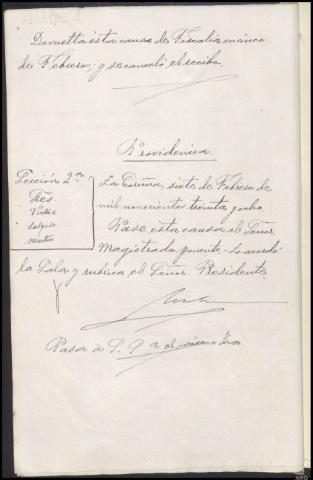 Devuelta esta causa de Fiscalía en cinco
de Febrero; y se canceló el recibo.
Providencia
Sección 2ª
Sres
Pintos
Salgado
Martín
La Coruña, siete de Febrero de
mil novecientos treinta y ocho
Pase esta causa al Señor
Magistrado ponente.- Lo acordó
la Sala y rubrica el Señor Presidente.
Pasa a S. Sª el mismo día.